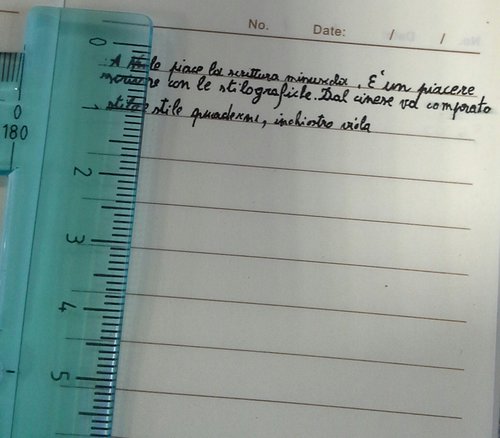 No. Date: / /
0
A me le piace la scrittura minuscola, È un piacere
scrivere con le stilografiche. Dal cinese va comprato
stile quaderni, inchiostro viola
0
180
2
3
4
5